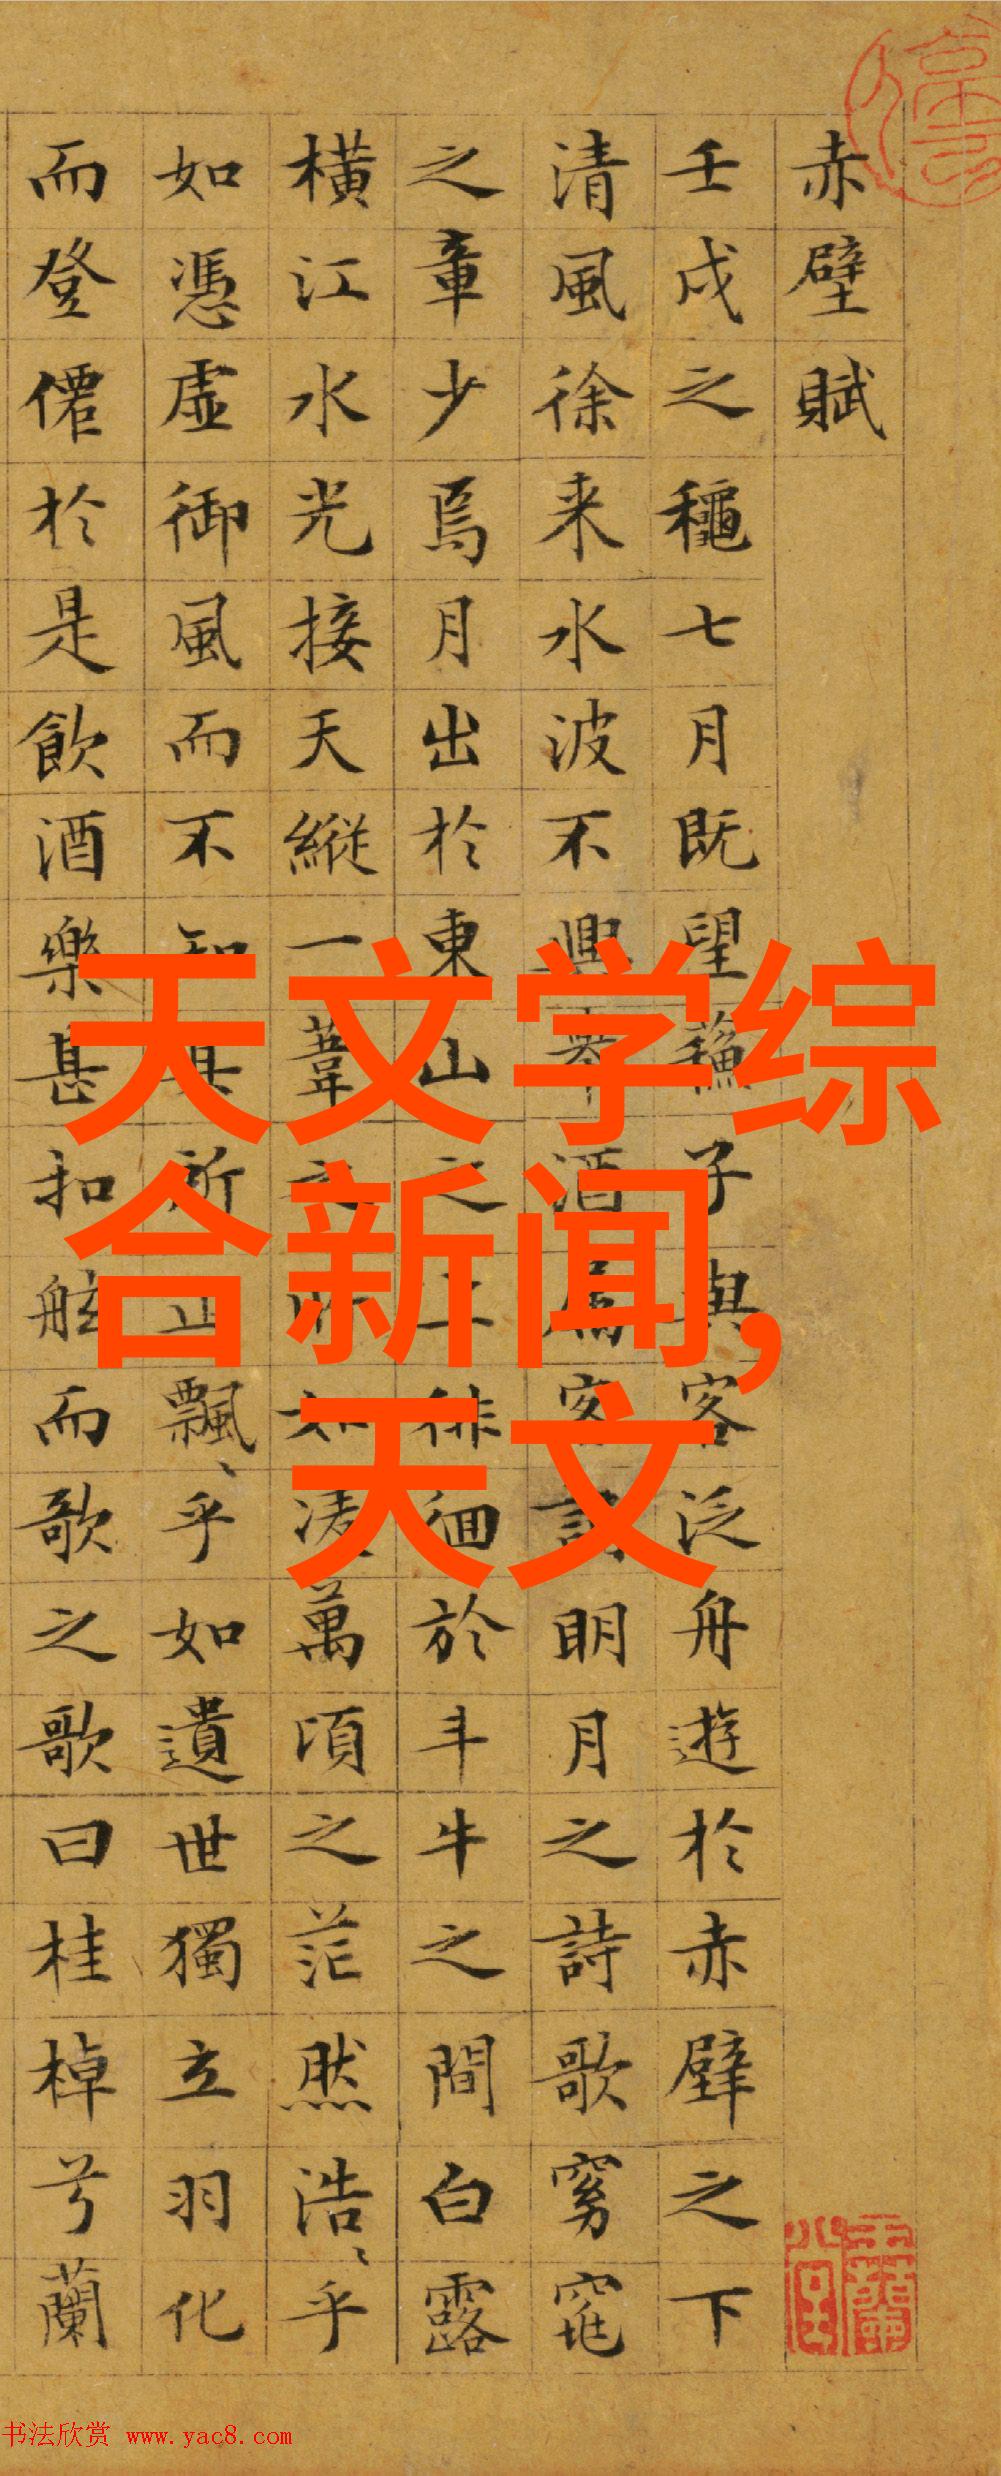 赤壁賦
壬戌之龝七月既望蘓子與客泛舟遊於赤壁之下
清風徐来水波不興舉酒屬客誦明月之詩歌窈窕
之章少焉月出於東山之上徘徊於斗牛之間白露
横江水光接天縱一葦之所如凌萬頃之茫然浩〻乎
如憑虛御風而不知其所止飄〻乎如遺世獨立羽化
而登僊於是飲酒樂甚扣舷而歌之歌曰桂棹兮蘭
天文学综
合新闻,
天文
书法欣赏 www.yac8.com